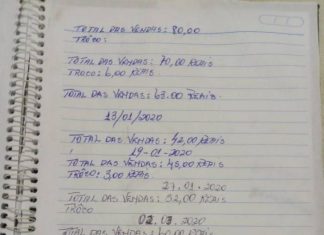 TOTAL DAS VENDAS: 80,00
TROCO:
TOTAL DAS VENDAS: 70,00 REAIS
TROCO: 6,00 REAIS.
TOTAL DAS VENDAS: 63.00 REAIS.
13/01/2020
TOTAL DAS VENDAS: 42,00 REAIS
19-01-2020
TOTAL DAS VENDAS: 45,00 REAIS
TROCO: 3,00 REAIS
27.01.2020
TOTAL DAS VENDAS: 52,00 REAIS
TROCO
02.03.2020
TOTAL DAS VENDAS: 60,00 REAIS